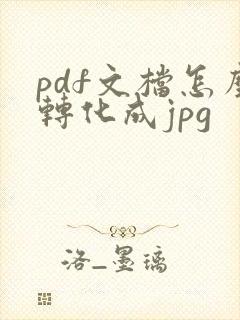 pdf文檔怎麼
轉化成jpg
洛_墨璃